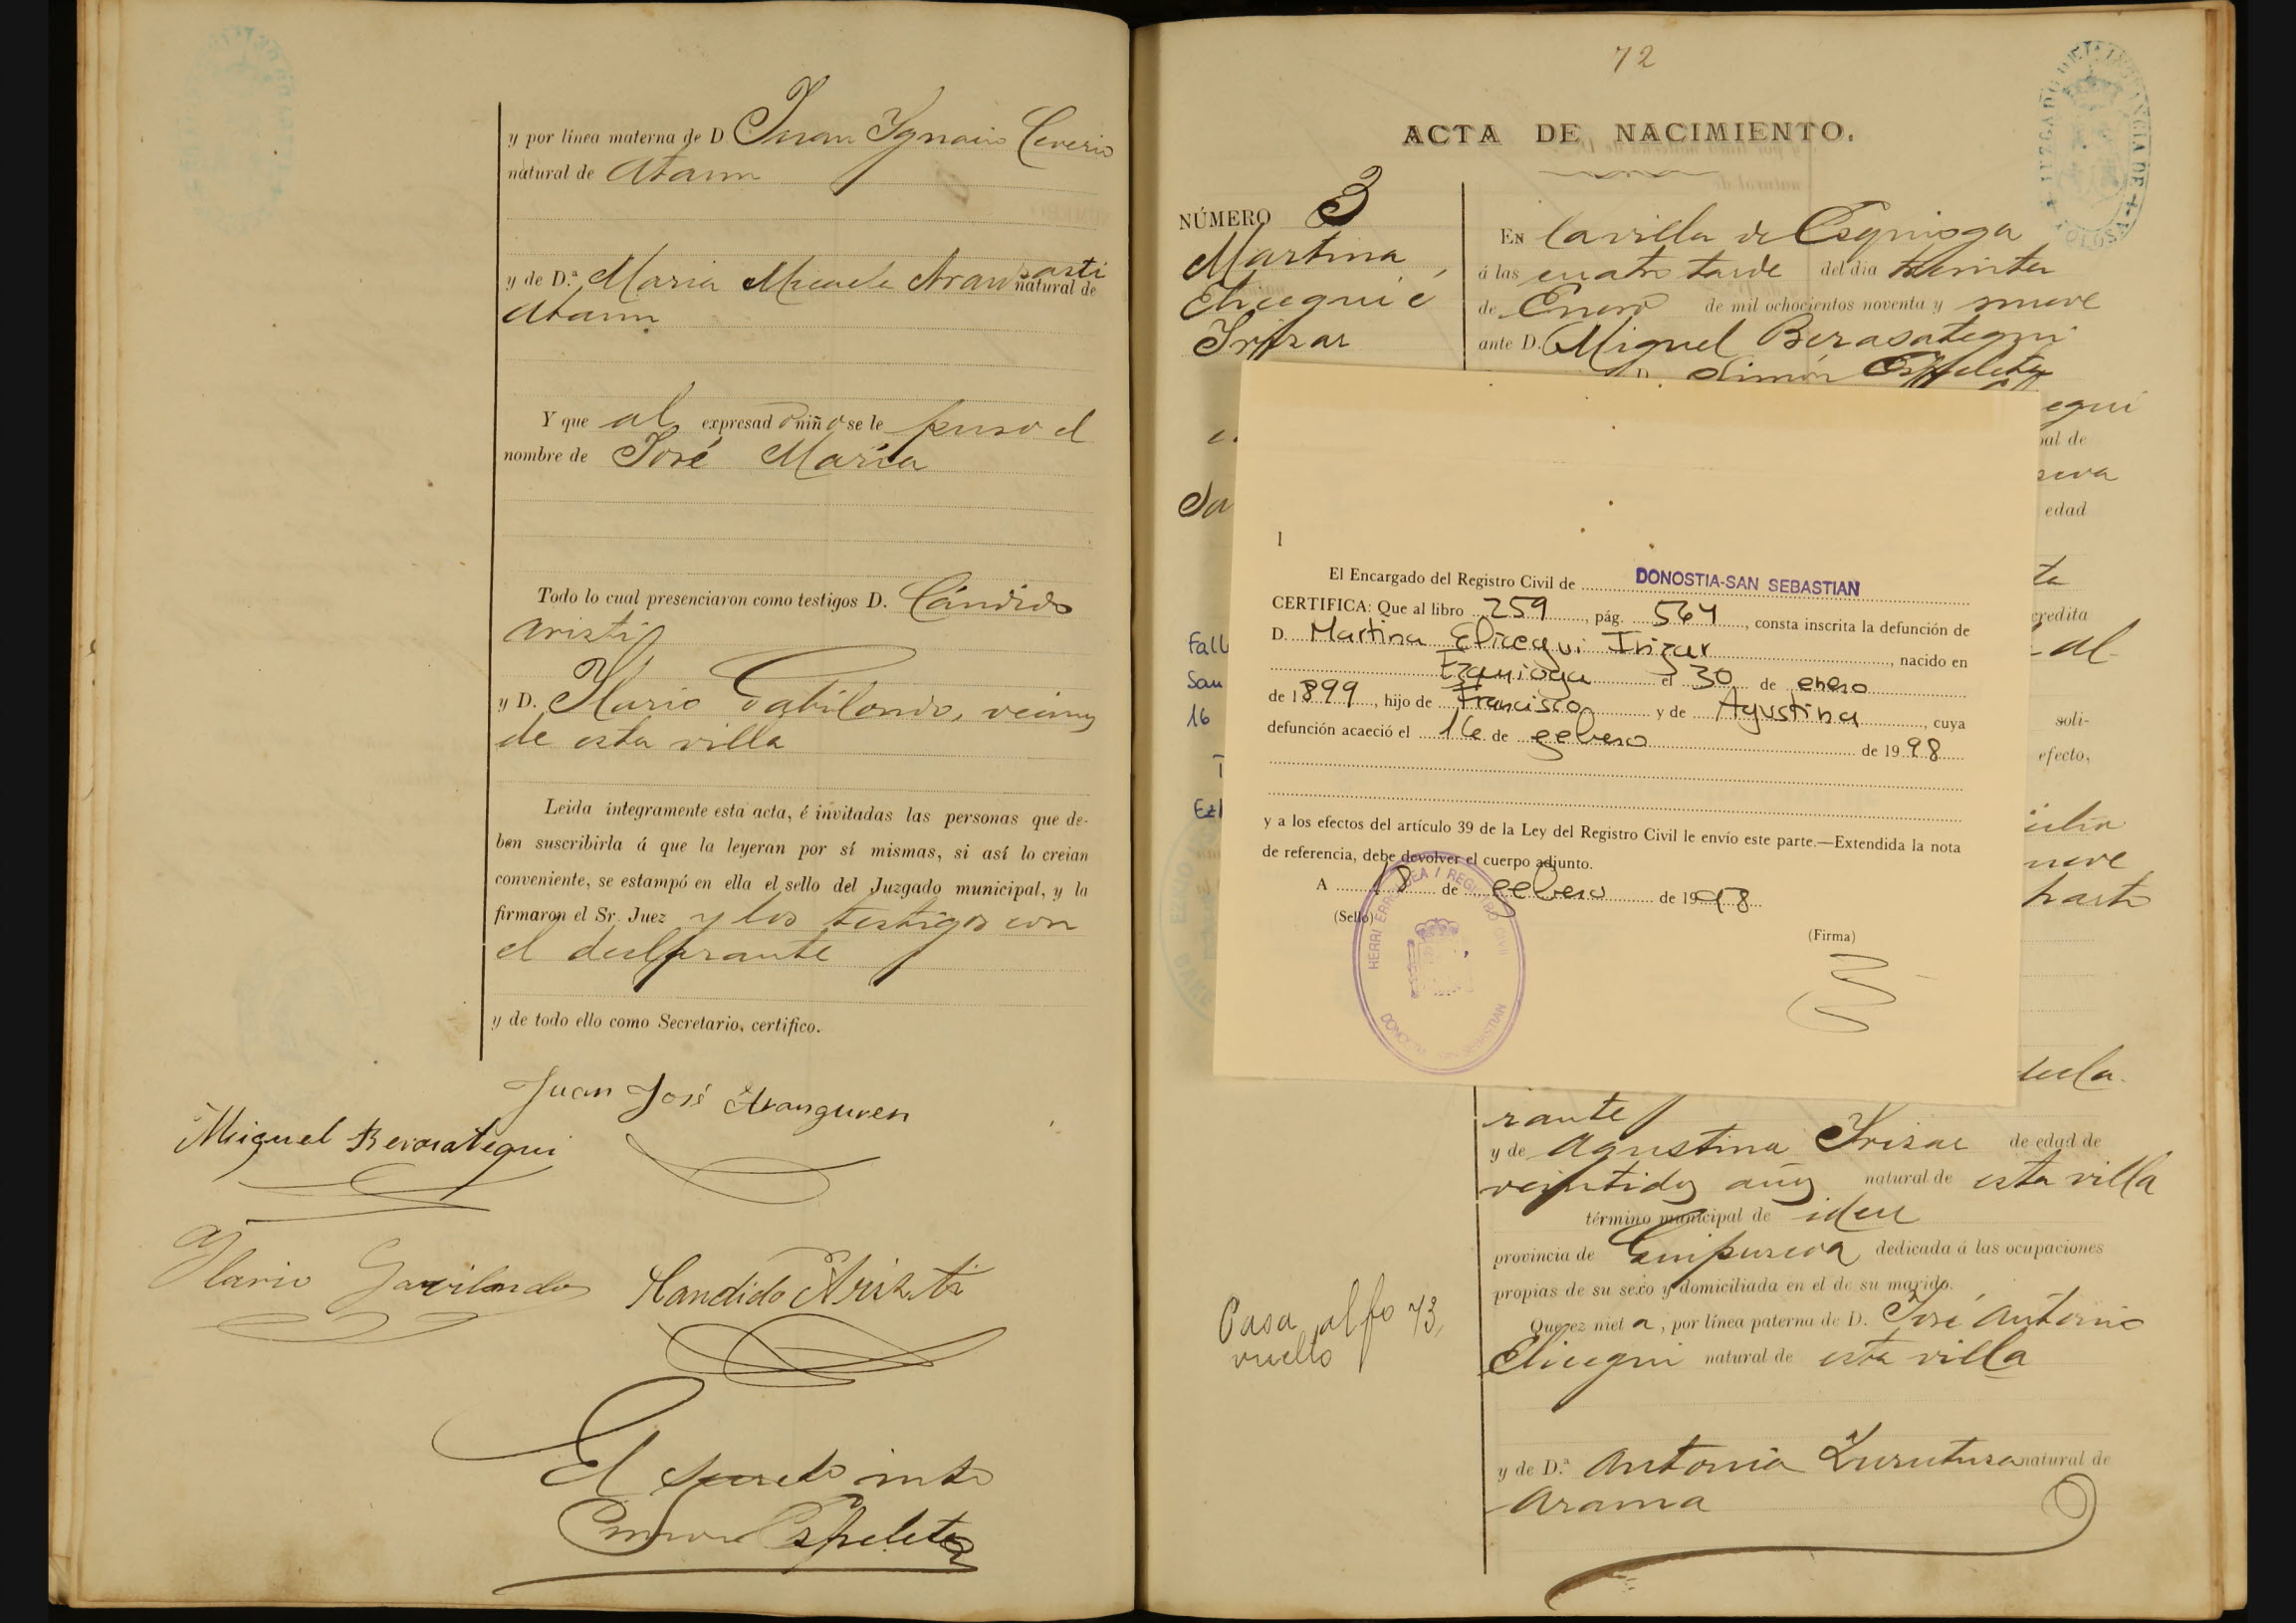 y por línea materna de D. Juan Ygnacio Ceverio
natural de Ataun
y de D.ª Maria Micaela Arandarasti natural de
Ataun
Y que al expresado niño se le puso el
nombre de José María
Todo lo cual presenciaron como testigos D. Cándido
Aristi
y D. Ylario Gabilondo, vecinos
de esta villa
Leida íntegramente esta acta, é invitadas las personas que de-
ben suscribirla á que la leyeran por sí mismas, si así lo creian
conveniente, se estampó en ella el sello del Juzgado municipal, y la
firmaron el Sr. Juez y los testigos con
el declarante
y de todo ello como Secretario, certifico.
Juan José Aranguren
Miguel Berasategui
Ylario Gavilondo Candido Aristi
El Secreto into
Espeleta
72
ACTA DE NACIMIENTO.
JUZGADO DE 1.ª INSTANCIA DE TOLOSA
NÚMERO 3
Martina
Elicegui é
Irizar
En la villa de Ezquioga
á las cuatro tarde del dia treinta
de Enero de mil ochocientos noventa y nueve
ante D. Miguel Berasategui
D. Simón Espeleta
egui
pal de
edad
ta
credita
al
soli-
efecto,
nueve
parto
Fall
San
16
1
El Encargado del Registro Civil de DONOSTIA-SAN SEBASTIAN
CERTIFICA: Que al libro 259, pág. 564, consta inscrita la defunción de
D. Martina Elicegui Irizar, nacido en
Ezquioga el 30 de enero
de 1899, hijo de Francisco y de Agustina, cuya
defunción acaeció el 16 de febrero de 1998
y a los efectos del artículo 39 de la Ley del Registro Civil le envío este parte.—Extendida la nota
de referencia, debe devolver el cuerpo adjunto.
A 18 de febrero de 1998
(Sello)
(Firma)
HERRI ERROLDEA I REGISTRO CIVIL
DONOSTIA SAN SEBASTIAN
decla-
rante
y de Agustina Irizar de edad de
veintidos años natural de esta villa
término municipal de idem
provincia de Guipuzcoa dedicada á las ocupaciones
propias de su sexo y domiciliada en el de su marido.
Que ez nieta, por línea paterna de D. José Antonio
Elicegui natural de esta villa
Pasa al fo 73,
vuelto
y de D.ª Antonia Zurutuza natural de
Arama